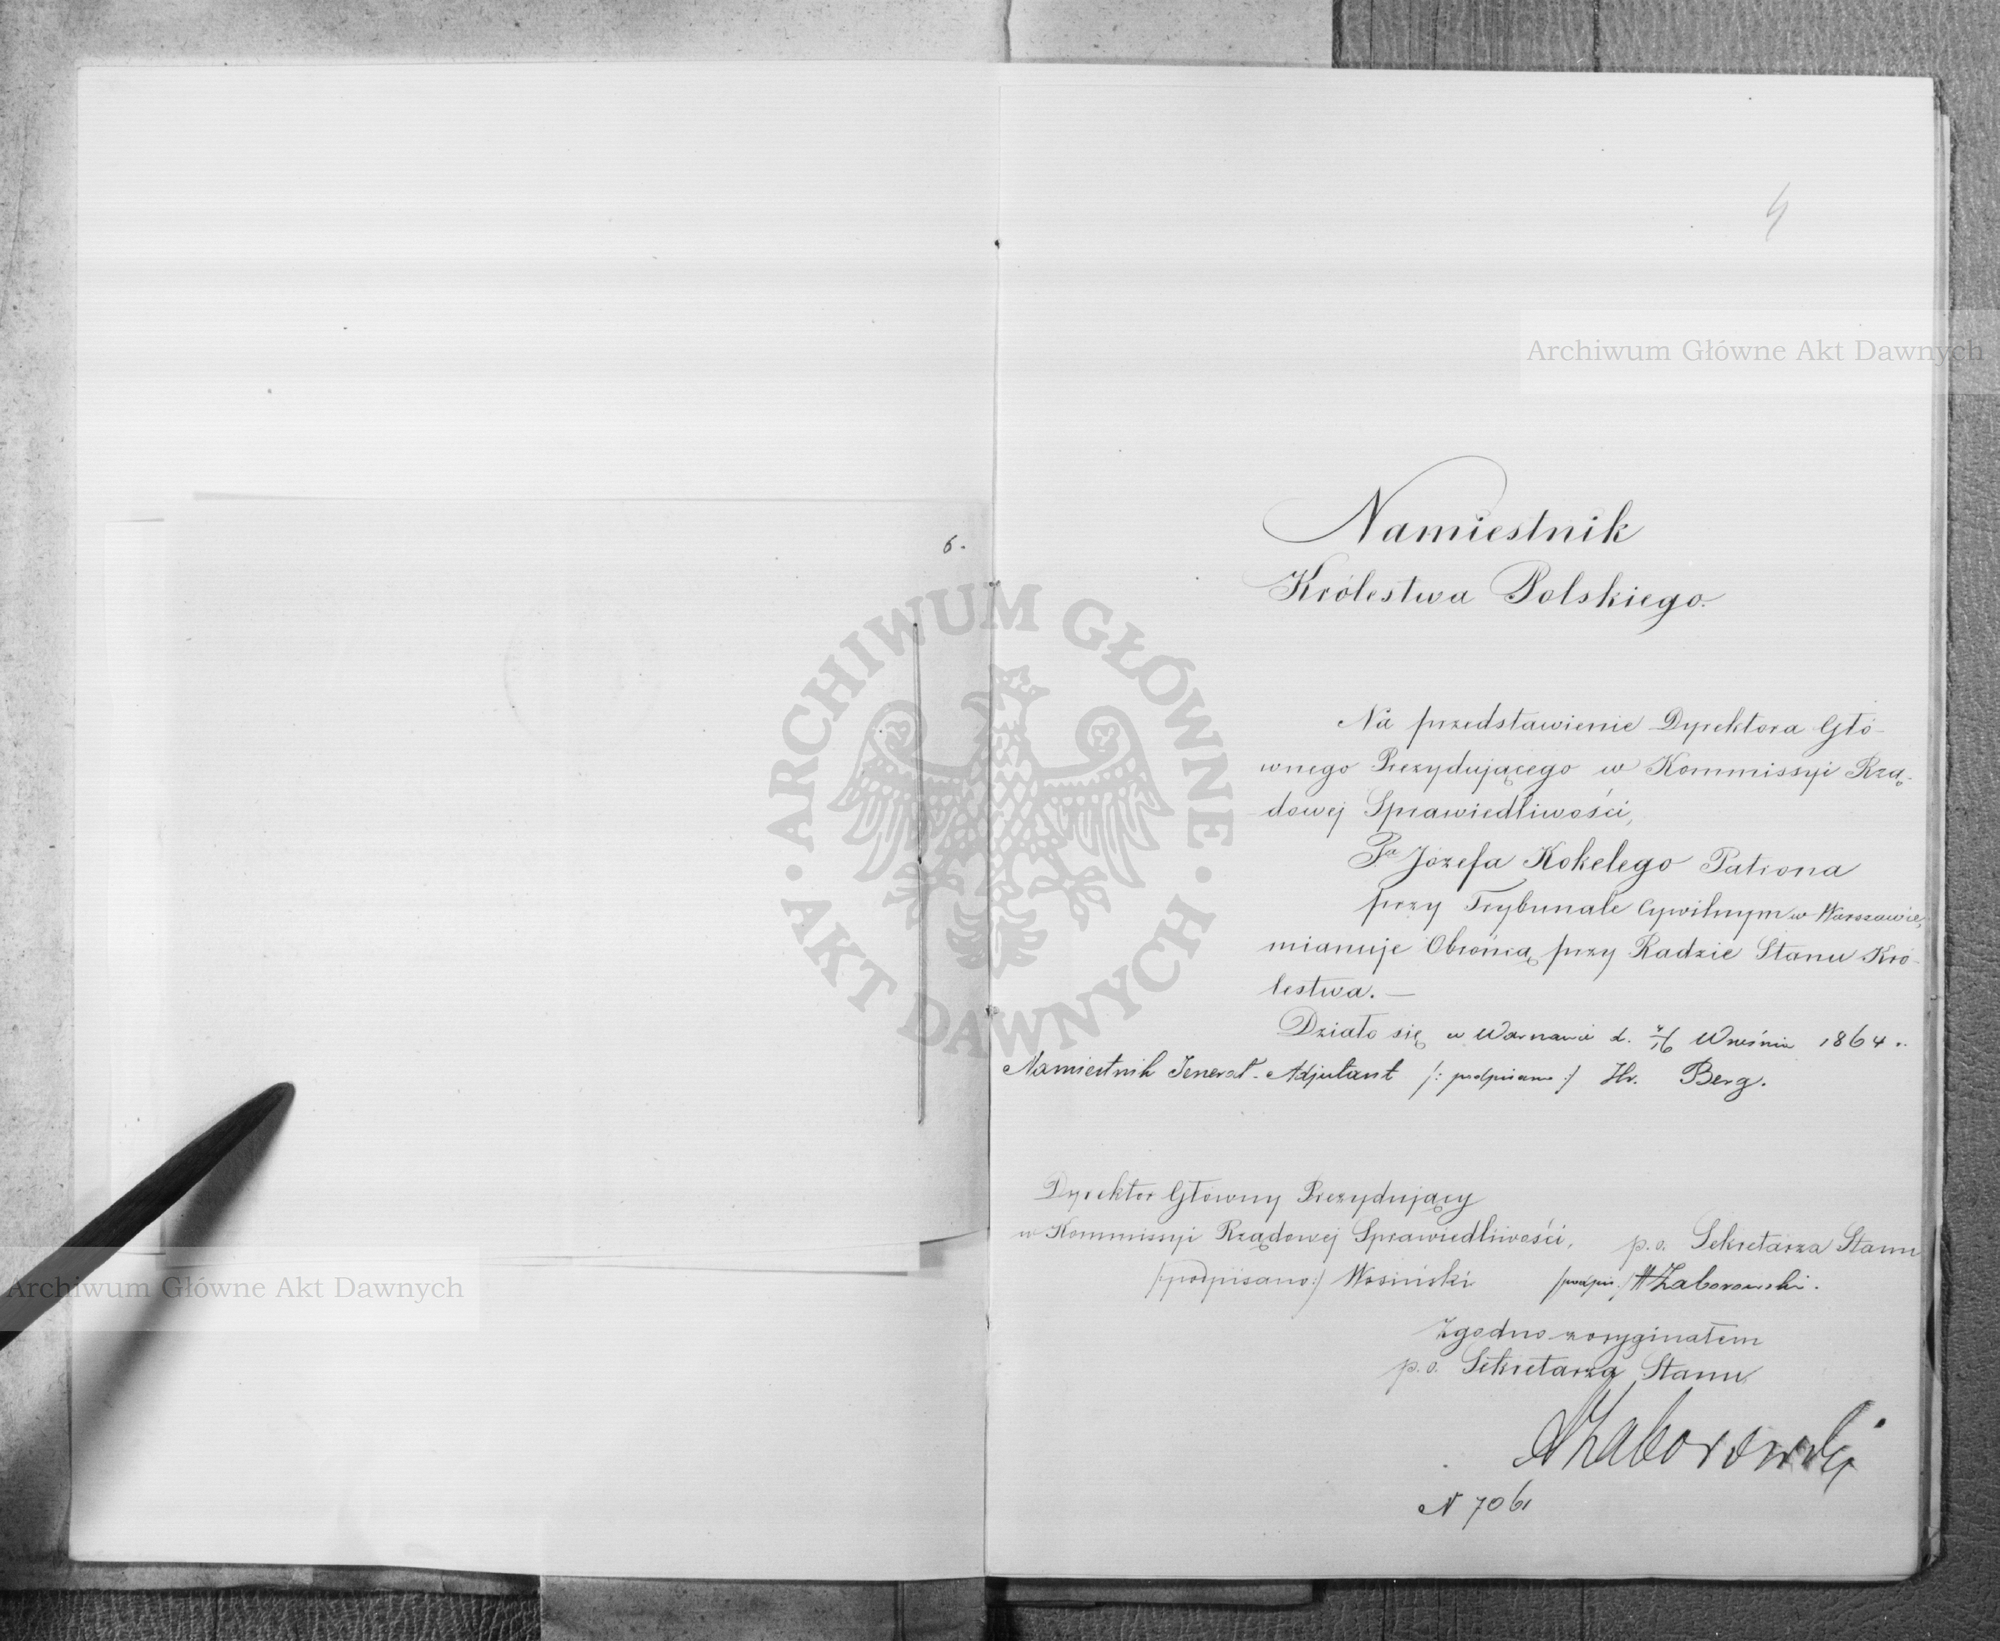 6.
4
Namiestnik
Królestwa Polskiego.
Na przedstawienie Dyrektora Głó-
wnego Prezydującego w Kommissyi Rzą-
dowej Sprawiedliwości,
Pa Józefa Kokelego Patrona
przy Trybunale Cywilnym w Warszawie,
mianuje Obrońcą przy Radzie Stanu Kró-
lestwa. —
Działo się w Warszawie d. 4/16 Września 1864 r.
Namiestnik Jenerał-Adjutant /:podpisano:/ Hr. Berg.
Dyrektor Główny Prezydujący
w Kommissyi Rządowej Sprawiedliwości,
/:podpisano:/ Wosiński
p.o. Sekretarza Stanu
/podpis:/ Zaborowski.
Zgodno z oryginałem
p.o. Sekretarza Stanu
Zaborowski
N 7061
Archiwum Główne Akt Dawnych
Archiwum Główne Akt Dawnych
ARCHIWUM GŁÓWNE
AKT DAWNYCH